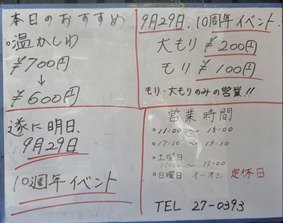 本日のおすすめ
○温かしわ
¥700円
↓
¥600円
遂に明日、
9月29日
10週年イベント
9月29日、10周年イベント
大もり¥200円
もり¥100円
もり、大もりのみの営業!!
営業時間
○11:00 ~ 15:00
○17:30 ~ 19:30
○土曜日
11:00 ~ 15:00
○日曜日
定休日
TEL 27-0393